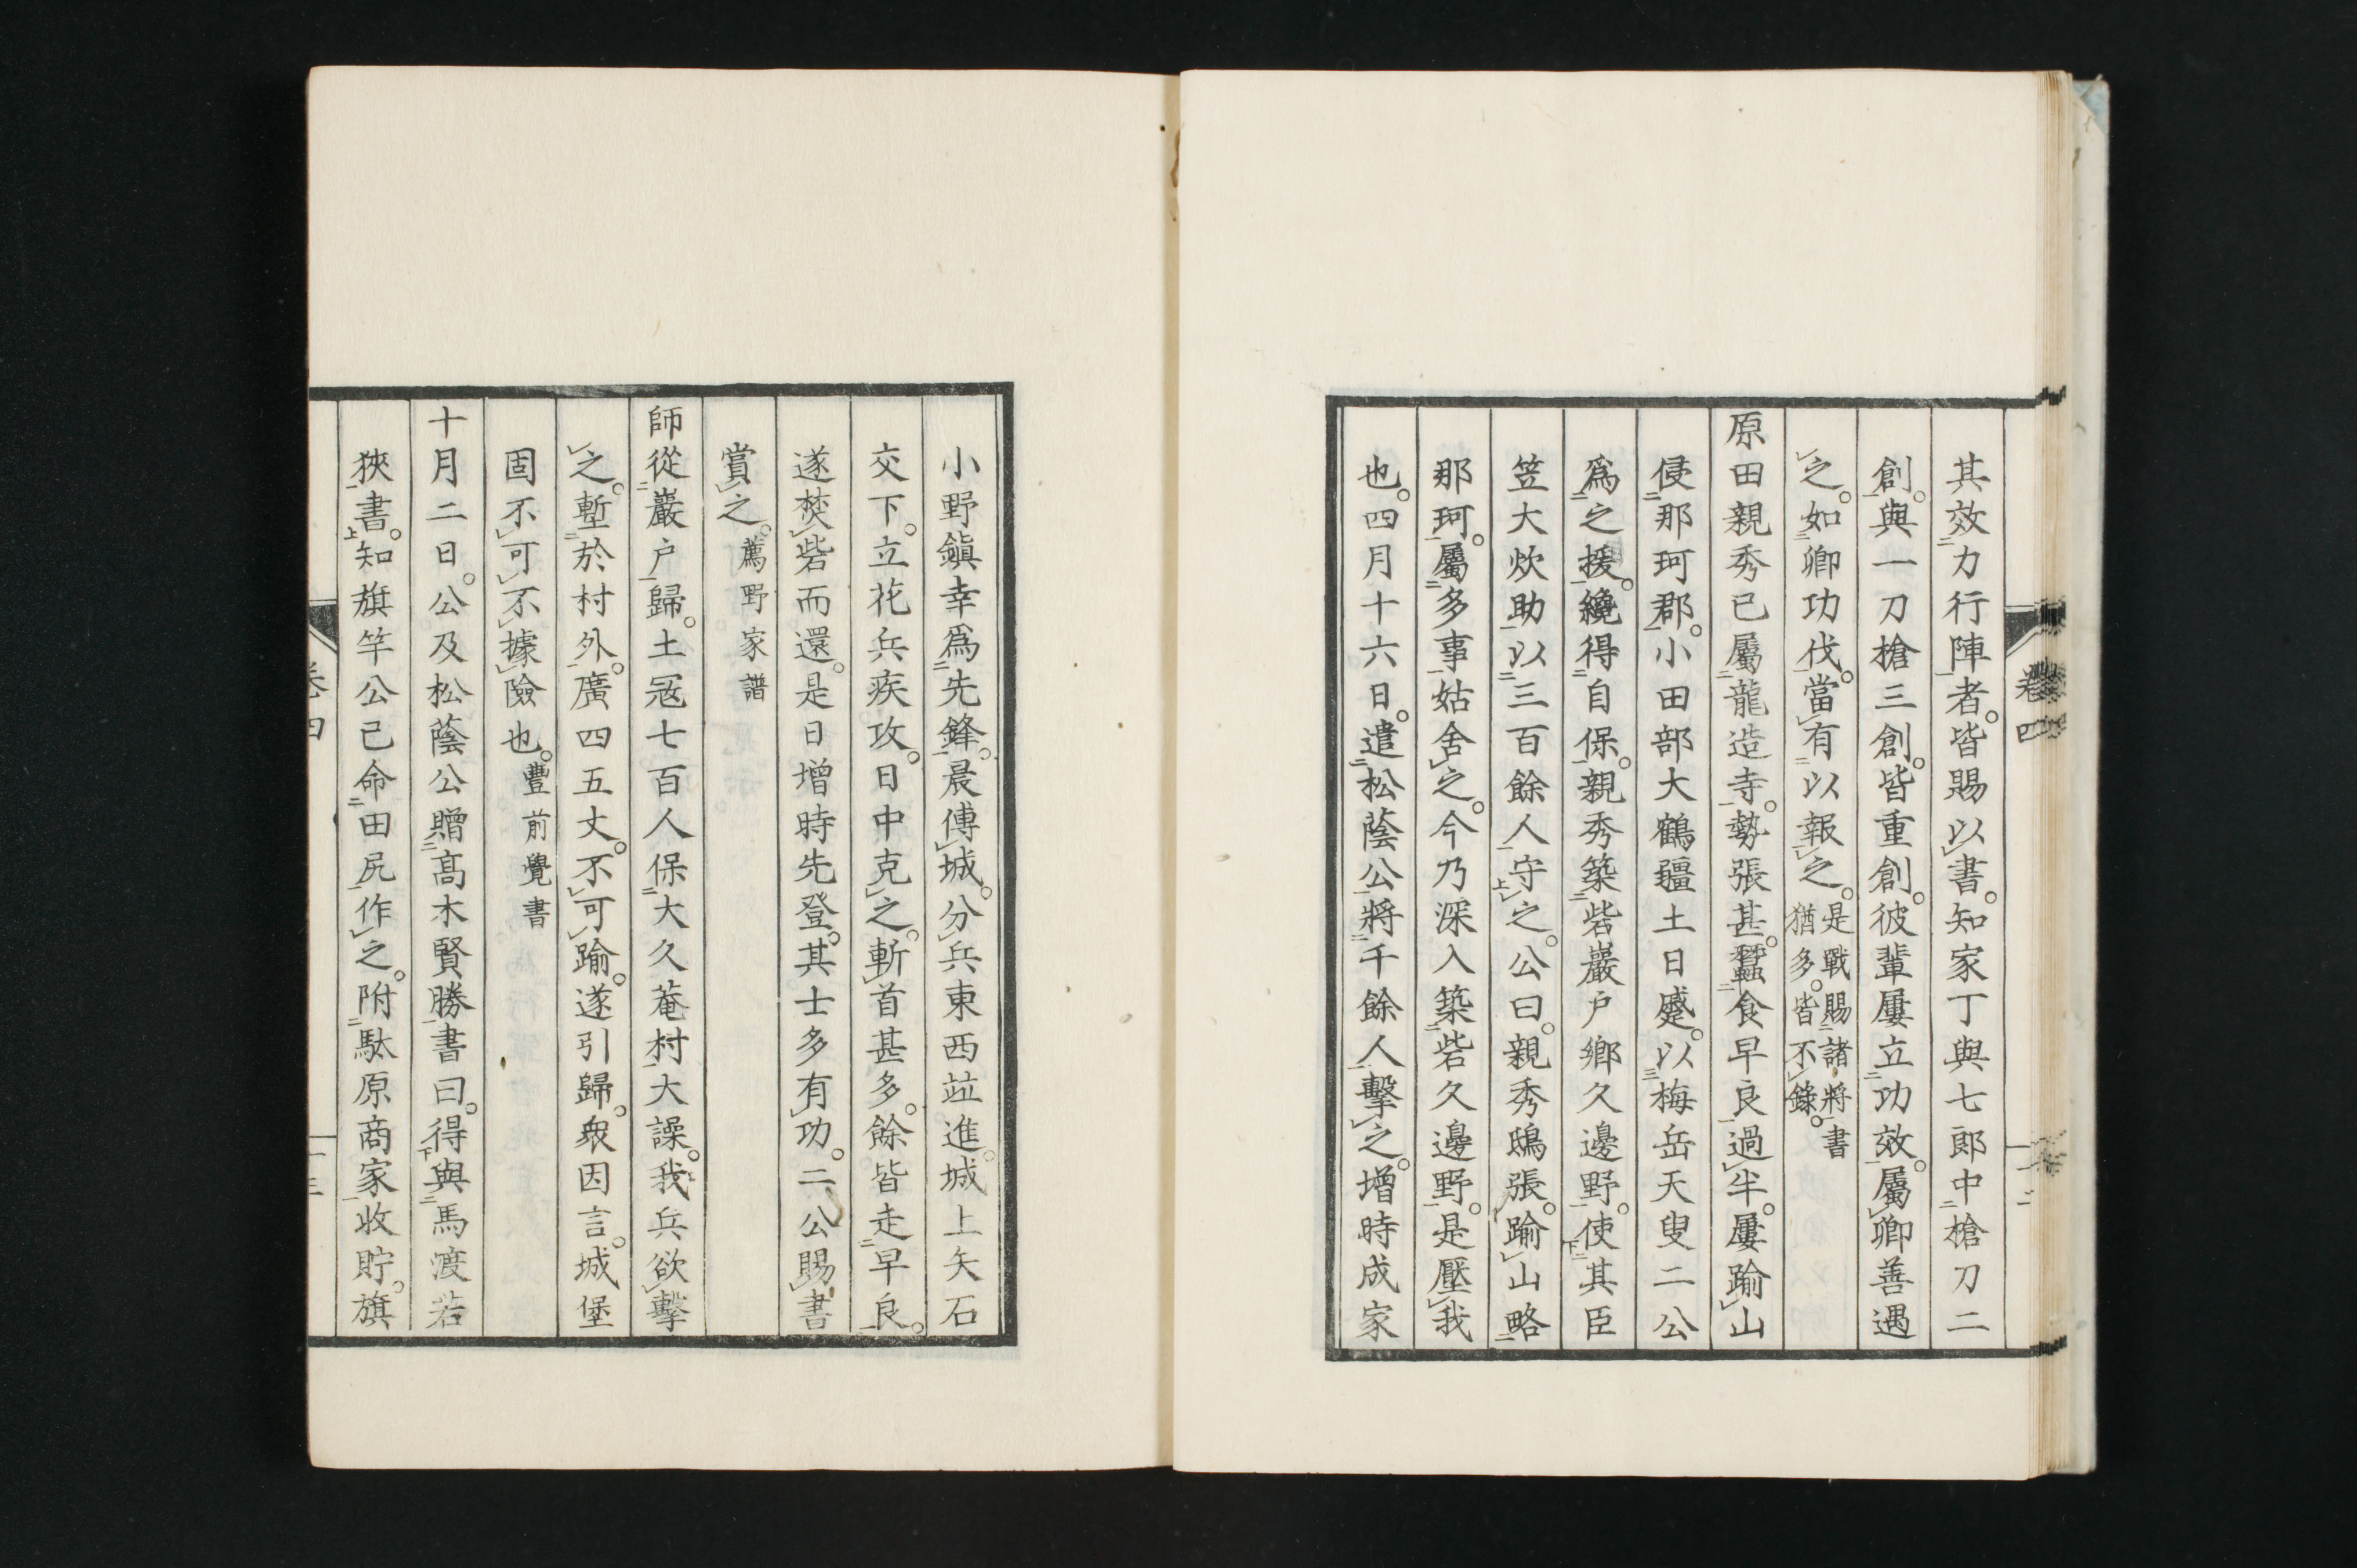 其效力行陣者。皆賜以書。知家丁與七郎中槍刀二
創。與一刀槍三創。皆重創。彼輩屢立功效。屬卿善遇
之。如卿功伐。當有以報之。是戰賜諸將書
猶多。皆不錄。
原田親秀已屬龍造寺。勢張甚。蠶食早良過半。屢踰山
侵那珂郡。小田部大鶴疆土日蹙。以梅岳天叟二公
爲之援。纔得自保。親秀築砦巖戶鄉久邊野。使其臣
笠大炊助以三百餘人守之。公曰。親秀鴟張。踰山略
那珂。屬多事姑舍之。今乃深入築砦久邊野。是壓我
也。四月十六日。遣松蔭公將千餘人擊之。增時成家
卷四
小野鎭幸爲先鋒。晨傅城。分兵東西竝進。城上矢石
交下。立花兵疾攻。日中克之。斬首甚多。餘皆走早良。
遂焚砦而還。是日增時先登。其士多有功。二公賜書
賞之。薦野家譜
師從巖戶歸。土冦七百人保大久菴村大譟。我兵欲擊
之。塹於村外。廣四五丈。不可踰。遂引歸。衆因言。城堡
固不可不據險也。豐前覺書
十月二日。公及松蔭公贈高木賢勝書曰。得與馬渡若
狹書。知旗竿公已命田尻作之。附駄原商家收貯。旗
卷四